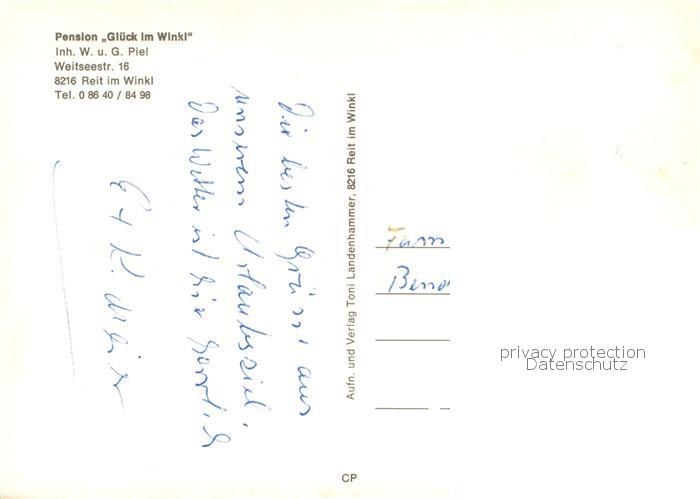 Pension „Glück im Winkl"
Inh. W. u. G. Piel
Weitseestr. 16
8216 Reit im Winkl
Tel. 0 86 40 / 84 98
Die besten Grüsse aus
unserem Urlaubsziel.
Das Wetter ist hier herrlich
E + K.
Aufn. und Verlag Toni Landenhammer, 8216 Reit im Winkl
Fam
privacy protection
Datenschutz
CP